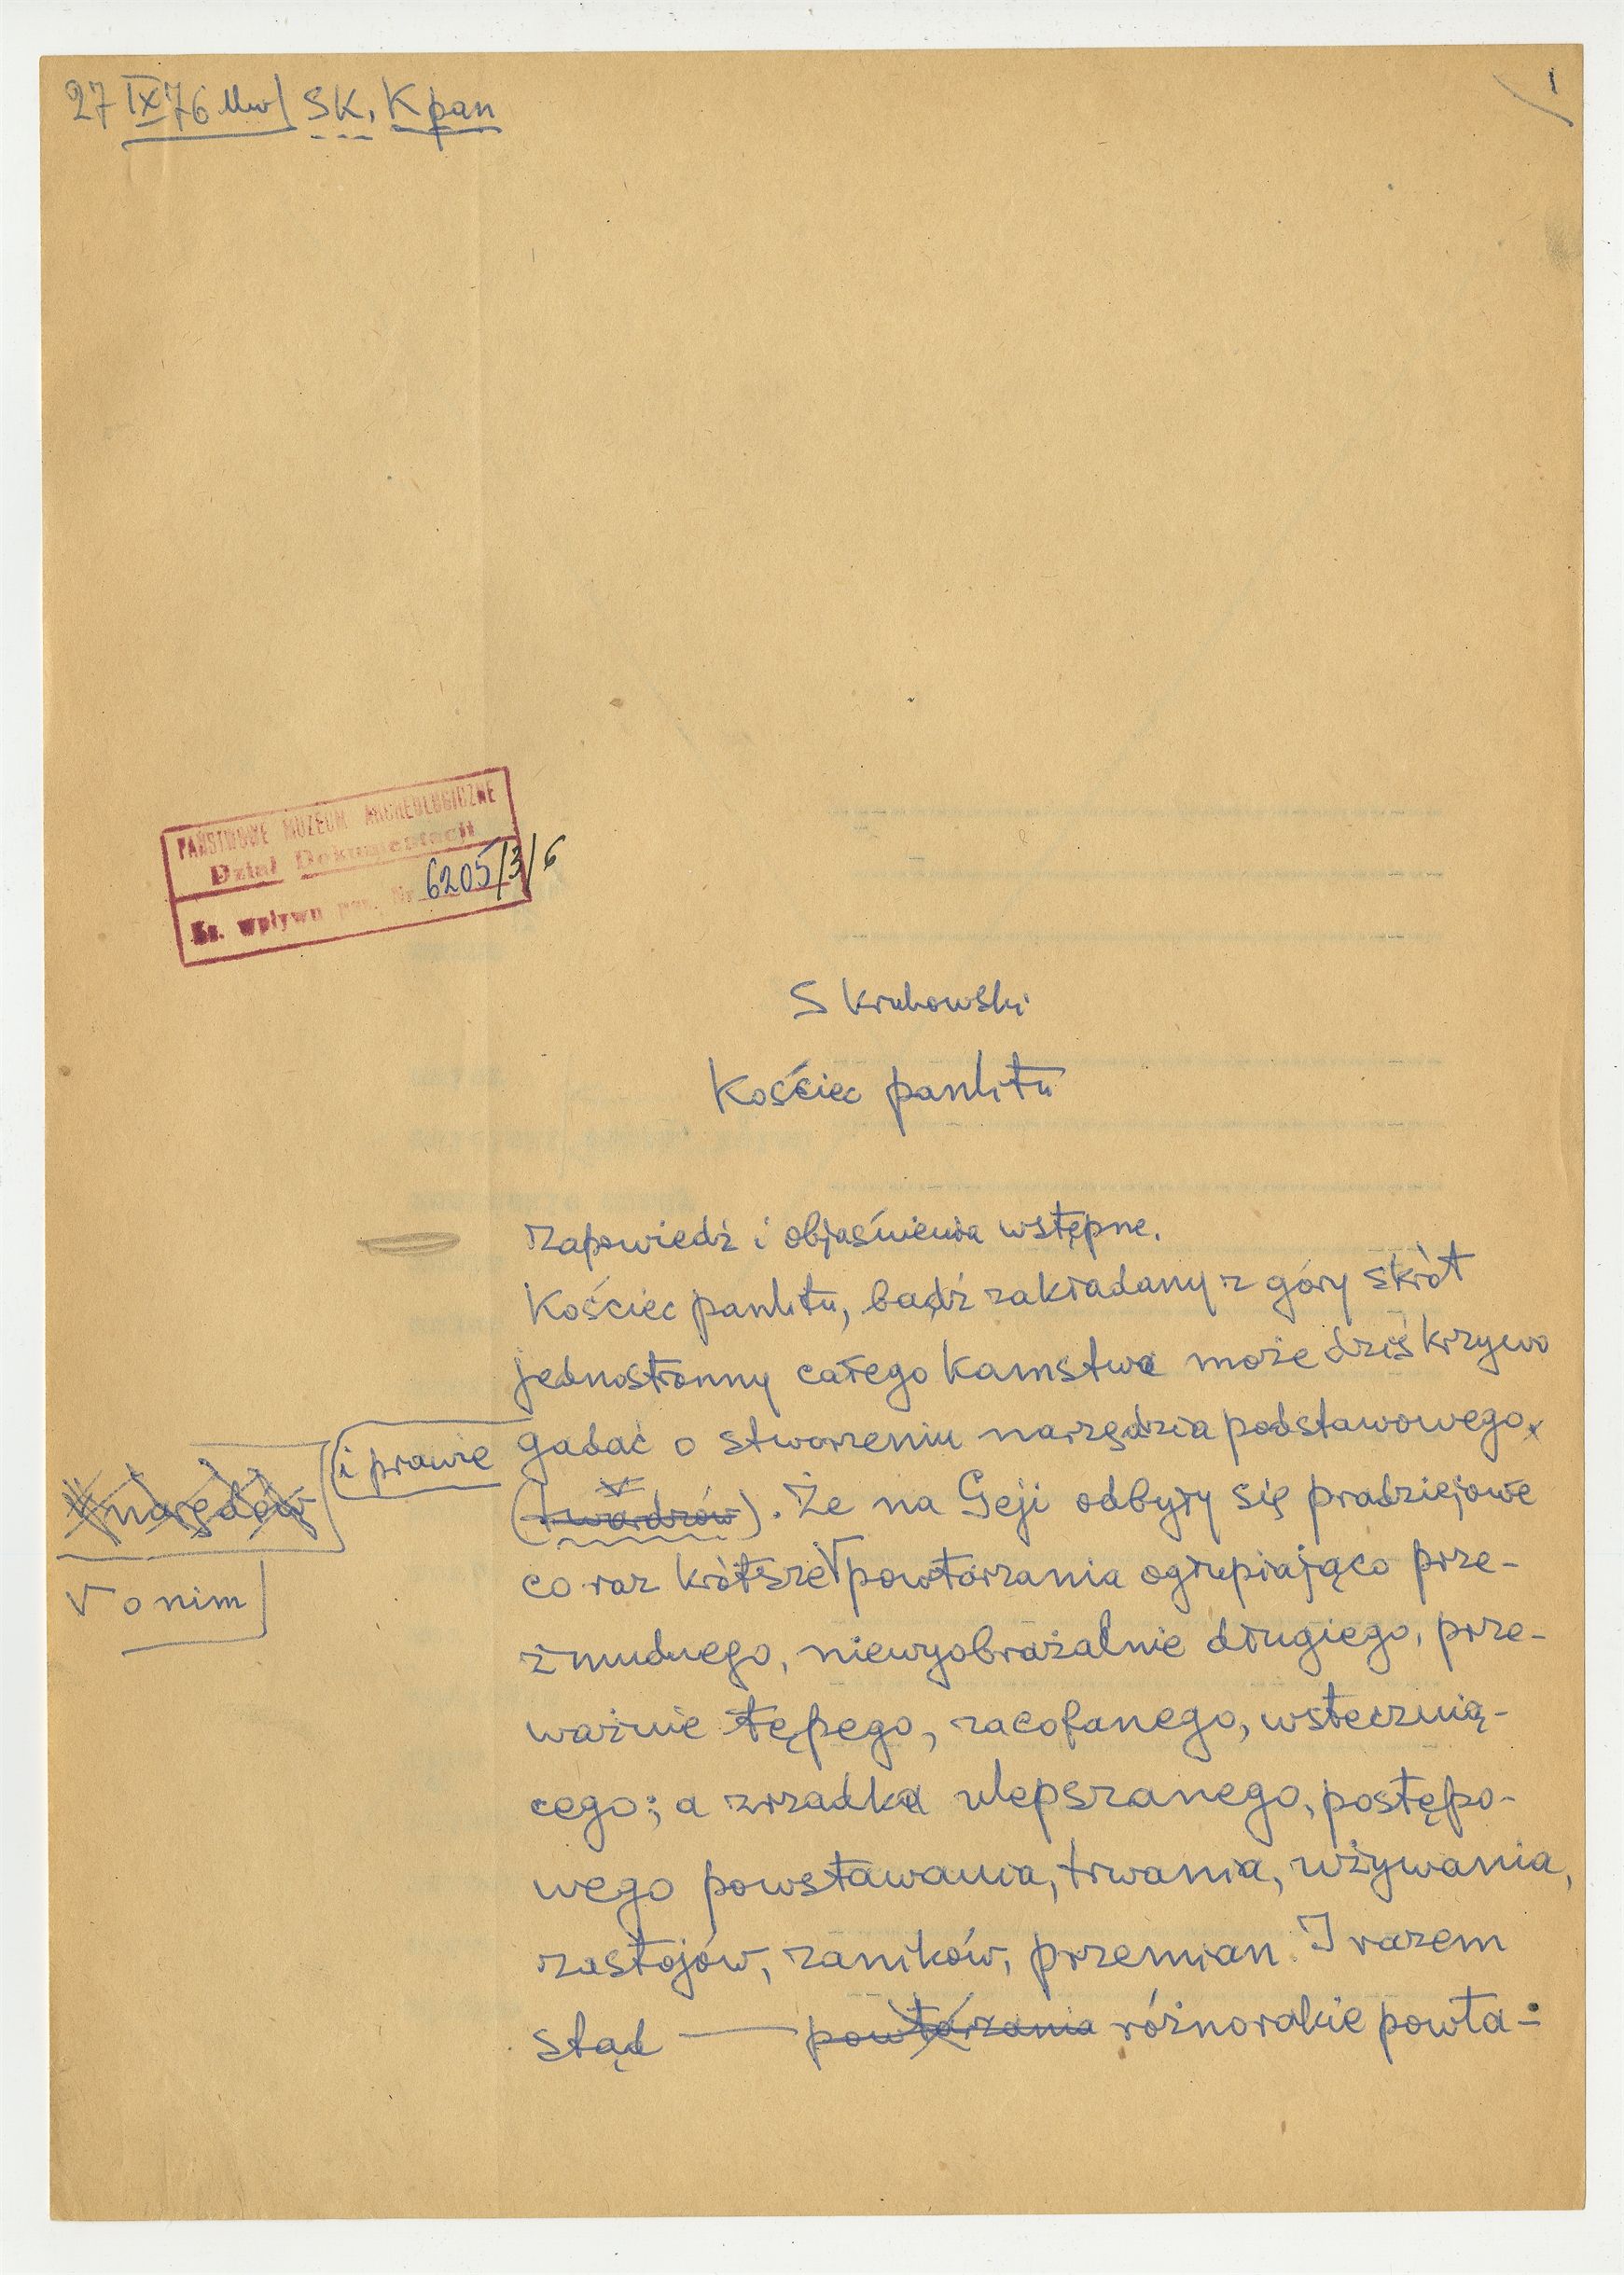 27 IX 76 Mw SK, K pan
1
PAŃSTWOWE MUZEUM ARCHEOLOGICZNE
Dział Dokumentacji
Ks. wpływu Nr 6205/3/6
S Krukowski
Kościec panlitu
Zapowiedź i objaśnienia wstępne.
Kościec panlitu, bądź zakładany z góry skrót
jednostronny całego kamstwa może dziś krzywo
i prawie gadać o stworzeniu narzędzia podstawowego
(twardzów). Że na Geji odbyły się pradziejowe
co raz krótsze V powtarzania ogłupiająco prze-
V o nim
żmudnego, niewyobrażalnie długiego, prze-
ważnie tępego, zacofanego, wstecznią-
cego; a zrzadka ulepszanego, postępo-
wego powstawania, trwania, używania,
zastojów, zaników, przemian. I razem
stąd — powtarzania różnorakie powta-